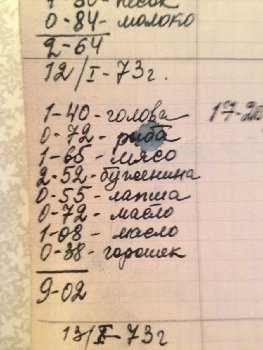 1-30- песок
0-84- молоко
2-64
12/I-73г.
1-40- голова
17-20
0-72- рыба
1-65- мясо
2-52- буженина
0-55- лапша
0-72- масло
1-08- масло
0-38- горошек
9-02
13/I-73г